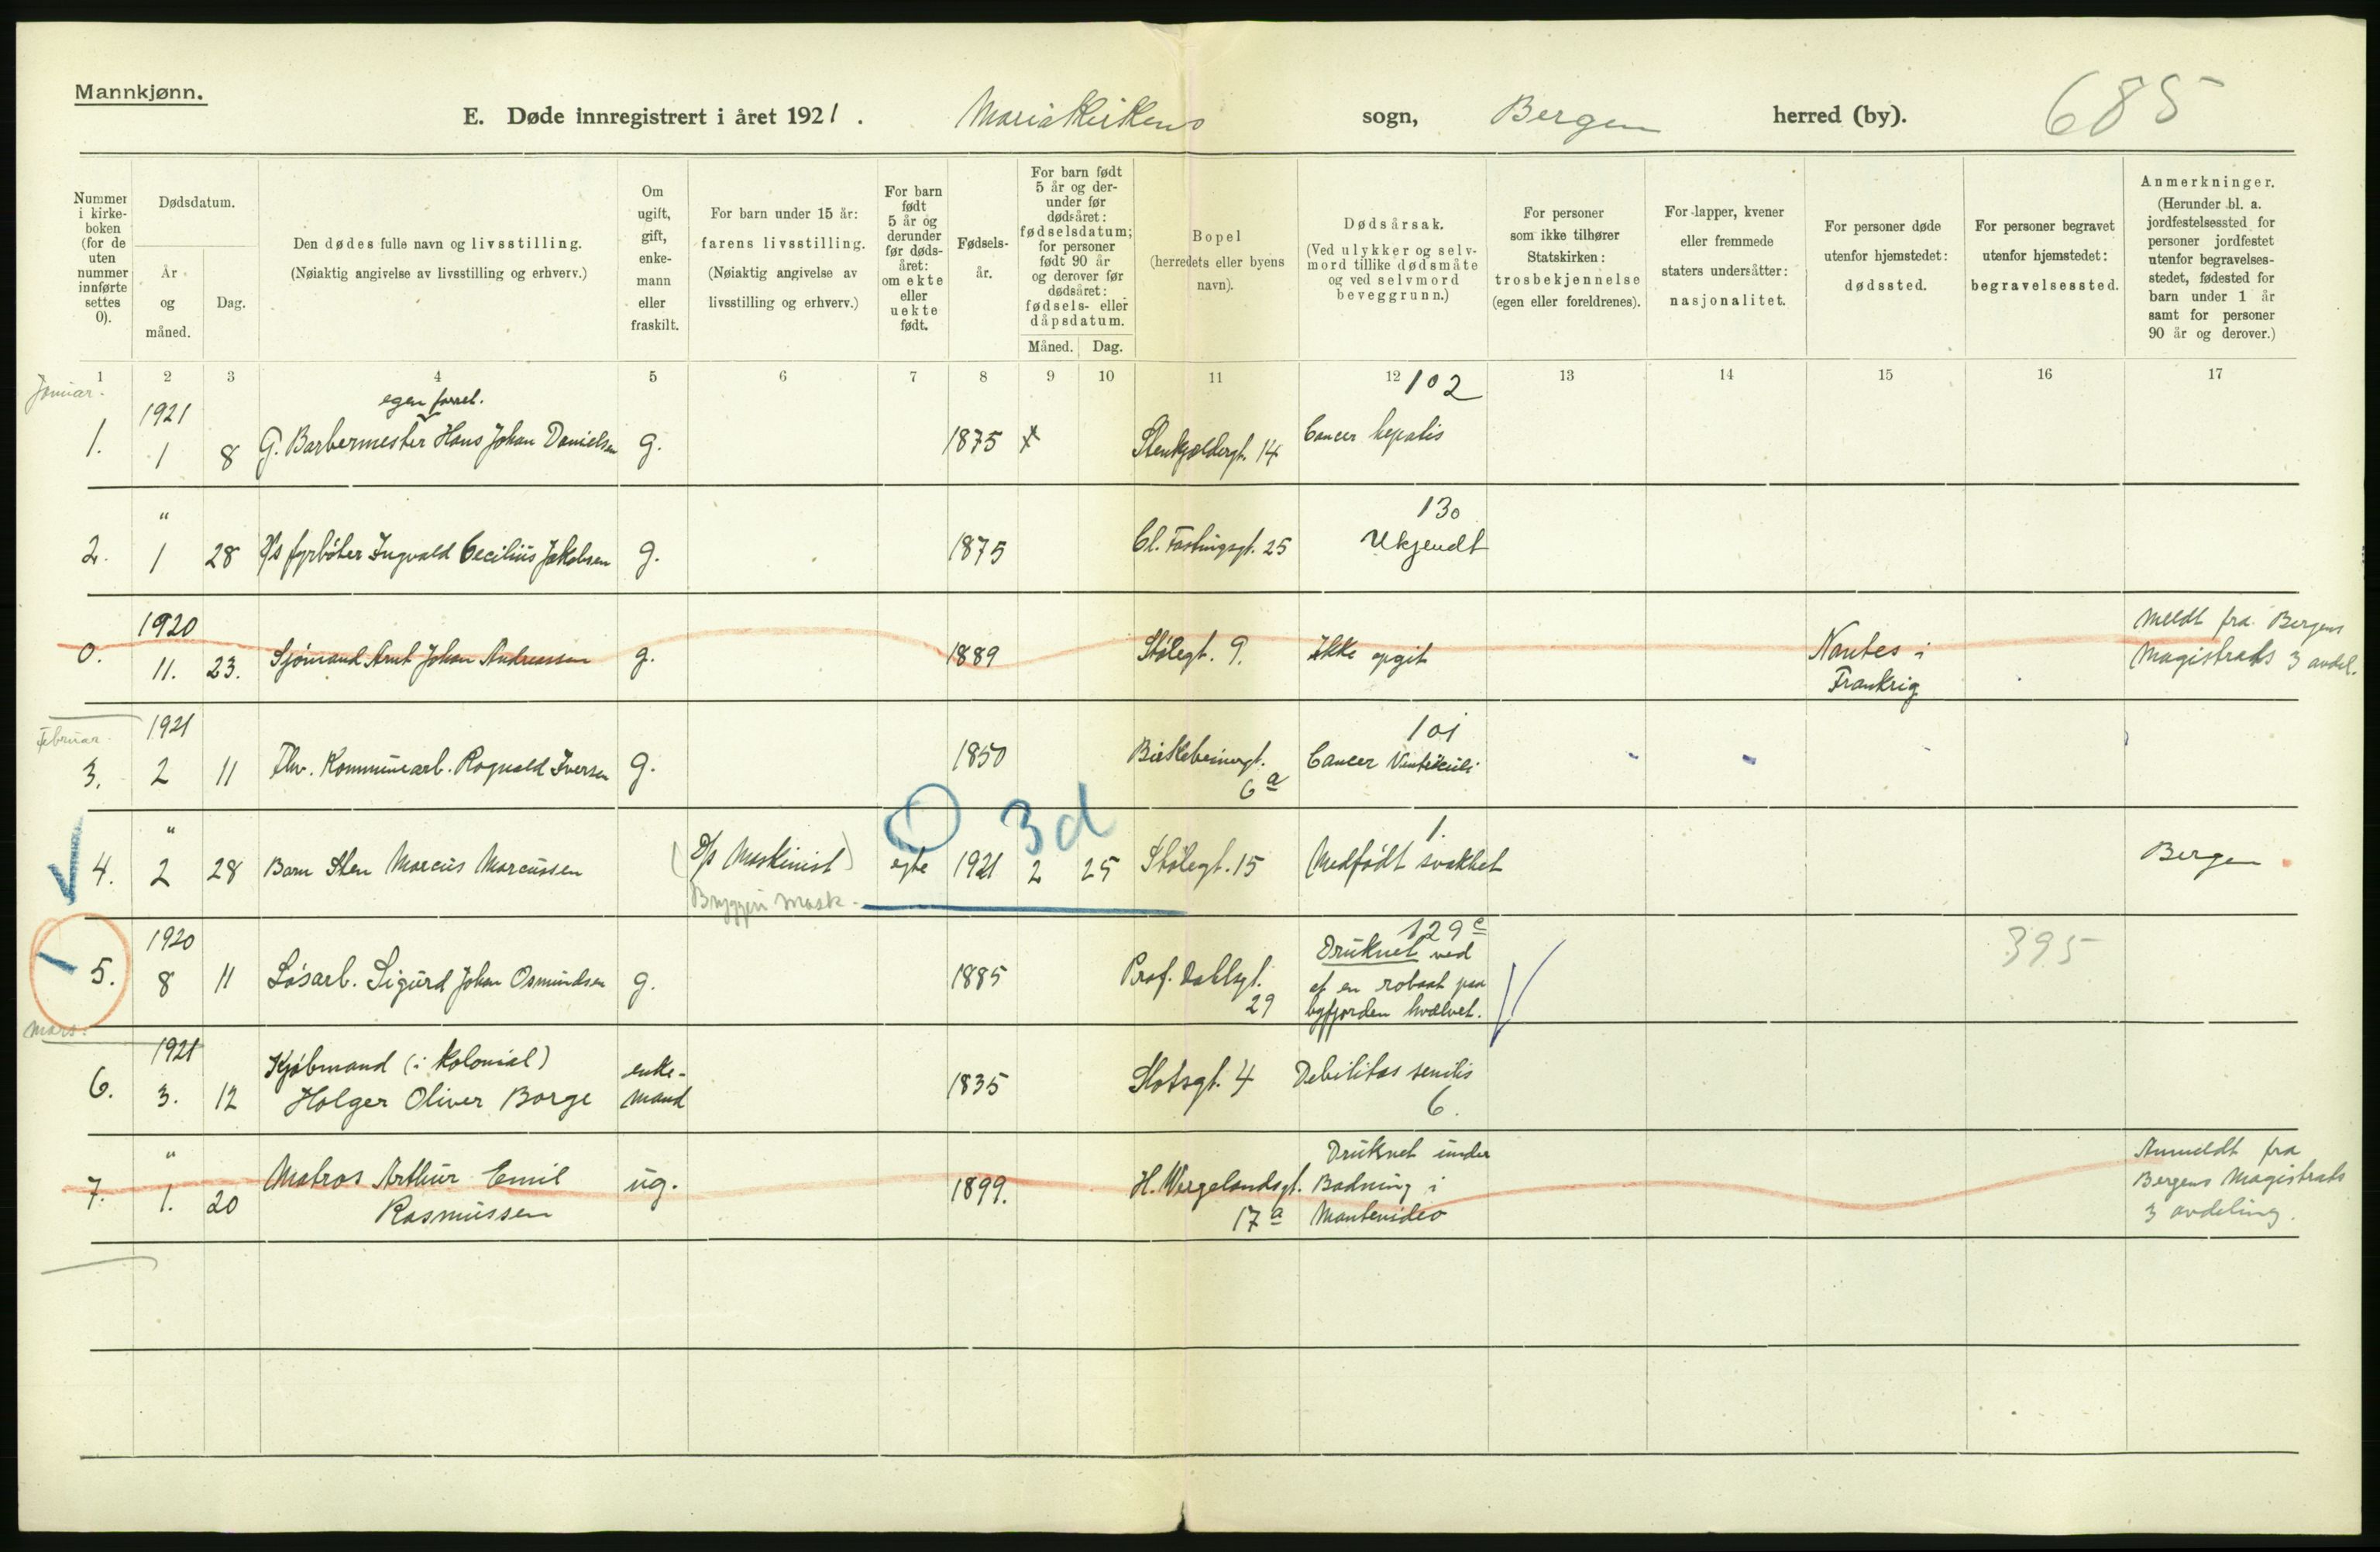 Mannkjønn.
E. Døde innregistrert i året 1921. Mariakirkens sogn, Bergen herred (by). 685
Nummer i kirke-boken (for de uten nummer innførte settes 0).
Dødsdatum.
År og måned.
Dag.
Den dødes fulle navn og livsstilling.
(Nøiaktig angivelse av livsstilling og erhverv.)
Om ugift, gift, enke-mann eller fraskilt.
For barn under 15 år:
farens livsstilling.
(Nøiaktig angivelse av
livsstilling og erhverv.)
For barn født 5 år og derunder før døds-året: om ekte eller uekte født.
Fødsels-år.
For barn født 5 år og der-under før dødsåret: fødselsdatum; for personer født 90 år og derover før dødsåret: fødsels- eller dåpsdatum.
Måned. Dag.
Bopel
(herredets eller byens navn).
Dødsårsak.
(Ved ulykker og selv-mord tillike dødsmåte og ved selvmord beveggrunn.)
For personer som ikke tilhører Statskirken:
trosbekjennelse
(egen eller foreldrenes).
For lapper, kvener eller fremmede staters undersåtter:
nasjonalitet.
For personer døde utenfor hjemstedet:
dødssted.
For personer begravet utenfor hjemstedet:
begravelsessted.
Anmerkninger.
(Herunder bl. a. jordfestelsessted for personer jordfestet utenfor begravelses-stedet, fødested for barn under 1 år samt for personer 90 år og derover.)
1 2 3 4 5 6 7 8 9 10 11 12 13 14 15 16 17
Januar.
102
egen forret.
1. 1921 1 8 G. Barbermester Hans Johan Danielsen g. 1875 Stenkjeldergt. 14 Cancer hepatis
130
2. " 1 28 fyrbøter Ingvald Cecilius Jakobsen g. 1875 Cl. Fastingsgt. 25 Ukjendt
0. 1920 11. 23. Sjømand Arnt Johan Andreassen g. 1889 Stølegt. 9. Ikke opgit Nantes i Frankrig Meldt fra Bergens Magistrats 3 avdel.
Februar.
101
3. 1921 2 11 Kommunearb. Ragnvald Iversen g. 1850 Birkebeinergt. 6 a Cancer Ventriculi
3d
1.
4. " 2 28 Barn Sten Marcus Marcussen (D/s Maskinist) egte 1921 2 25 Stølegt. 15 Medfødt svakhet Bergen
Bryggeri mask.
129 c
5. 1920 8 11 Løsarb. Sigurd Johan Osmundsen g. 1885 Prof. Dahlsgt. 29 Druknet ved at en robaat paa byfjorden hvælvet. 395
Mars.
6. 1921 3. 12 Kjøbmand (i kolonial) Holger Oliver Borge enke-mand 1835 Slotsgt. 4 Debilitas senilis
6.
7. " 1. 20 Matros Arthur Emil Rasmussen ug. 1899. H. Wergelandsgt. 17 a Druknet under Badning i Montevideo Anmeldt fra Bergens Magistrats 3 avdeling.